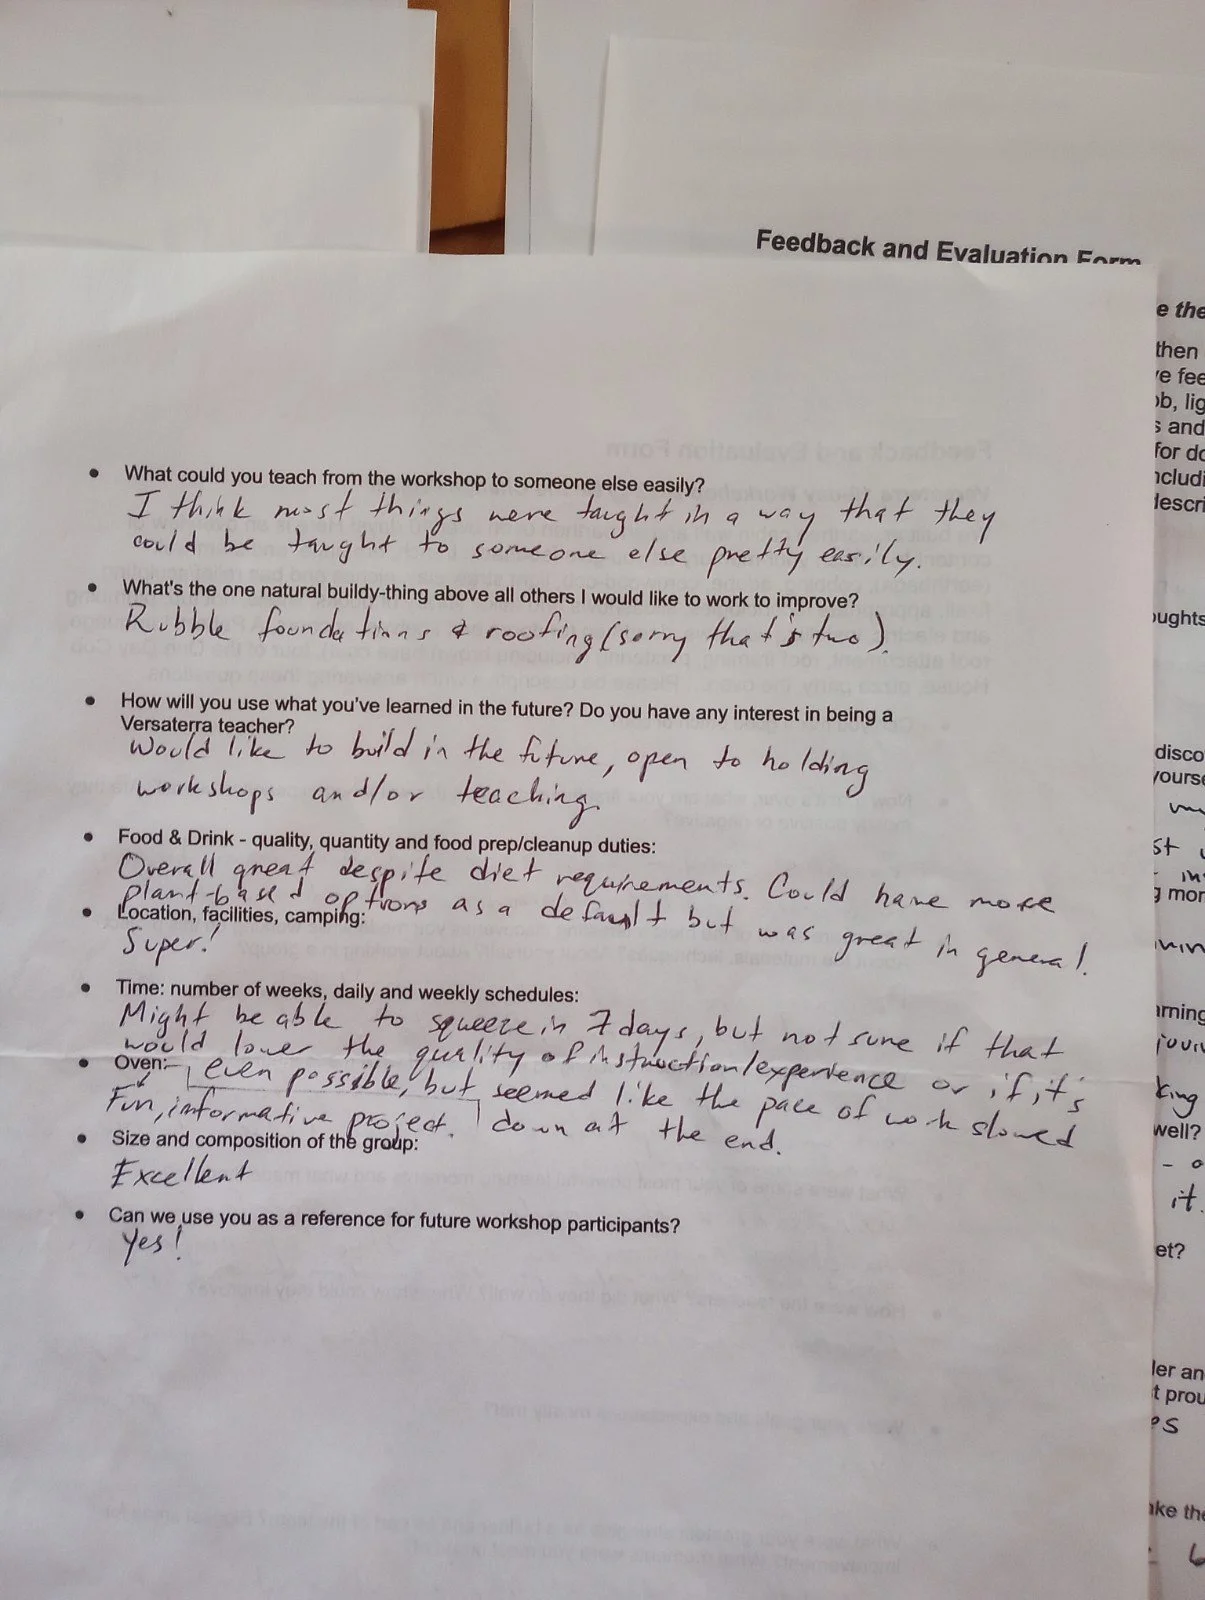 Feedback and Evaluation Form
• What could you teach from the workshop to someone else easily?
I think most things were taught in a way that they
could be taught to someone else pretty easily.
• What's the one natural buildy-thing above all others I would like to work to improve?
Rubble foundations & roofing (sorry that's two).
• How will you use what you've learned in the future? Do you have any interest in being a
Versaterra teacher?
Would like to build in the future, open to holding
workshops and/or teaching.
• Food & Drink - quality, quantity and food prep/cleanup duties:
Overall great despite diet requirements. Could have more
plant-based options as a default but was great in general.
• Location, facilities, camping:
Super!
• Time: number of weeks, daily and weekly schedules:
Might be able to squeeze in 7 days, but not sure if that
would lower the quality of instruction/experience or if it's
even possible, but seemed like the pace of work slowed
down at the end.
• Oven:
Fun, informative project.
• Size and composition of the group:
Excellent
• Can we use you as a reference for future workshop participants?
Yes!
e the
then
ve fee
ob, lig
s and
for do
ncludi
descri
oughts
disco
yourse
st
g mor
arning
king
well?
it.
et?
der an
t prou
ake the